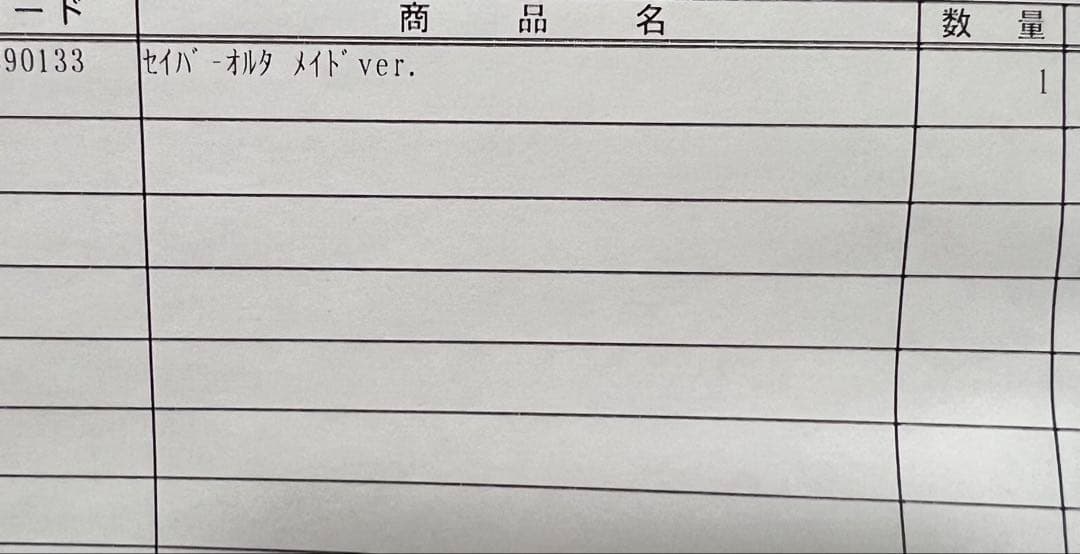 ード 商品名 数量
90133 ｾｲﾊﾞｰｵﾙﾀ ﾒｲﾄﾞver. 1